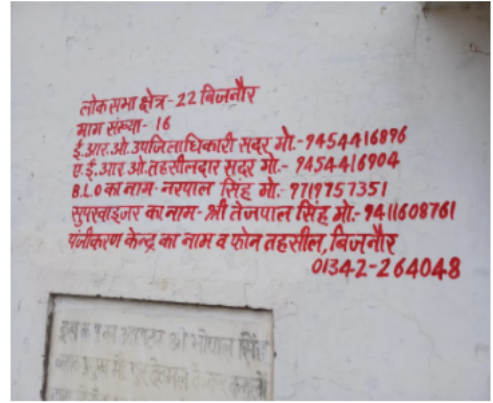 लोक सभा क्षेत्र-22 बिजनौर
भाग संख्या- 16
ई.आर.ओ.उपजिलाधिकारी सदर मो.- 9454416896
ए.ई.आर ओ.तहसीलदार सदर मो.- 9454416904
B.L.O का नाम- नरपाल सिंह मो.- 9719757351
सुपरवाइजर का नाम- श्री तेजपाल सिंह मो.- 9411608761
पंजीकरण केन्द्र का नाम व फोन तहसील, बिजनौर
01342-264048
श्री भोपाल सिंह